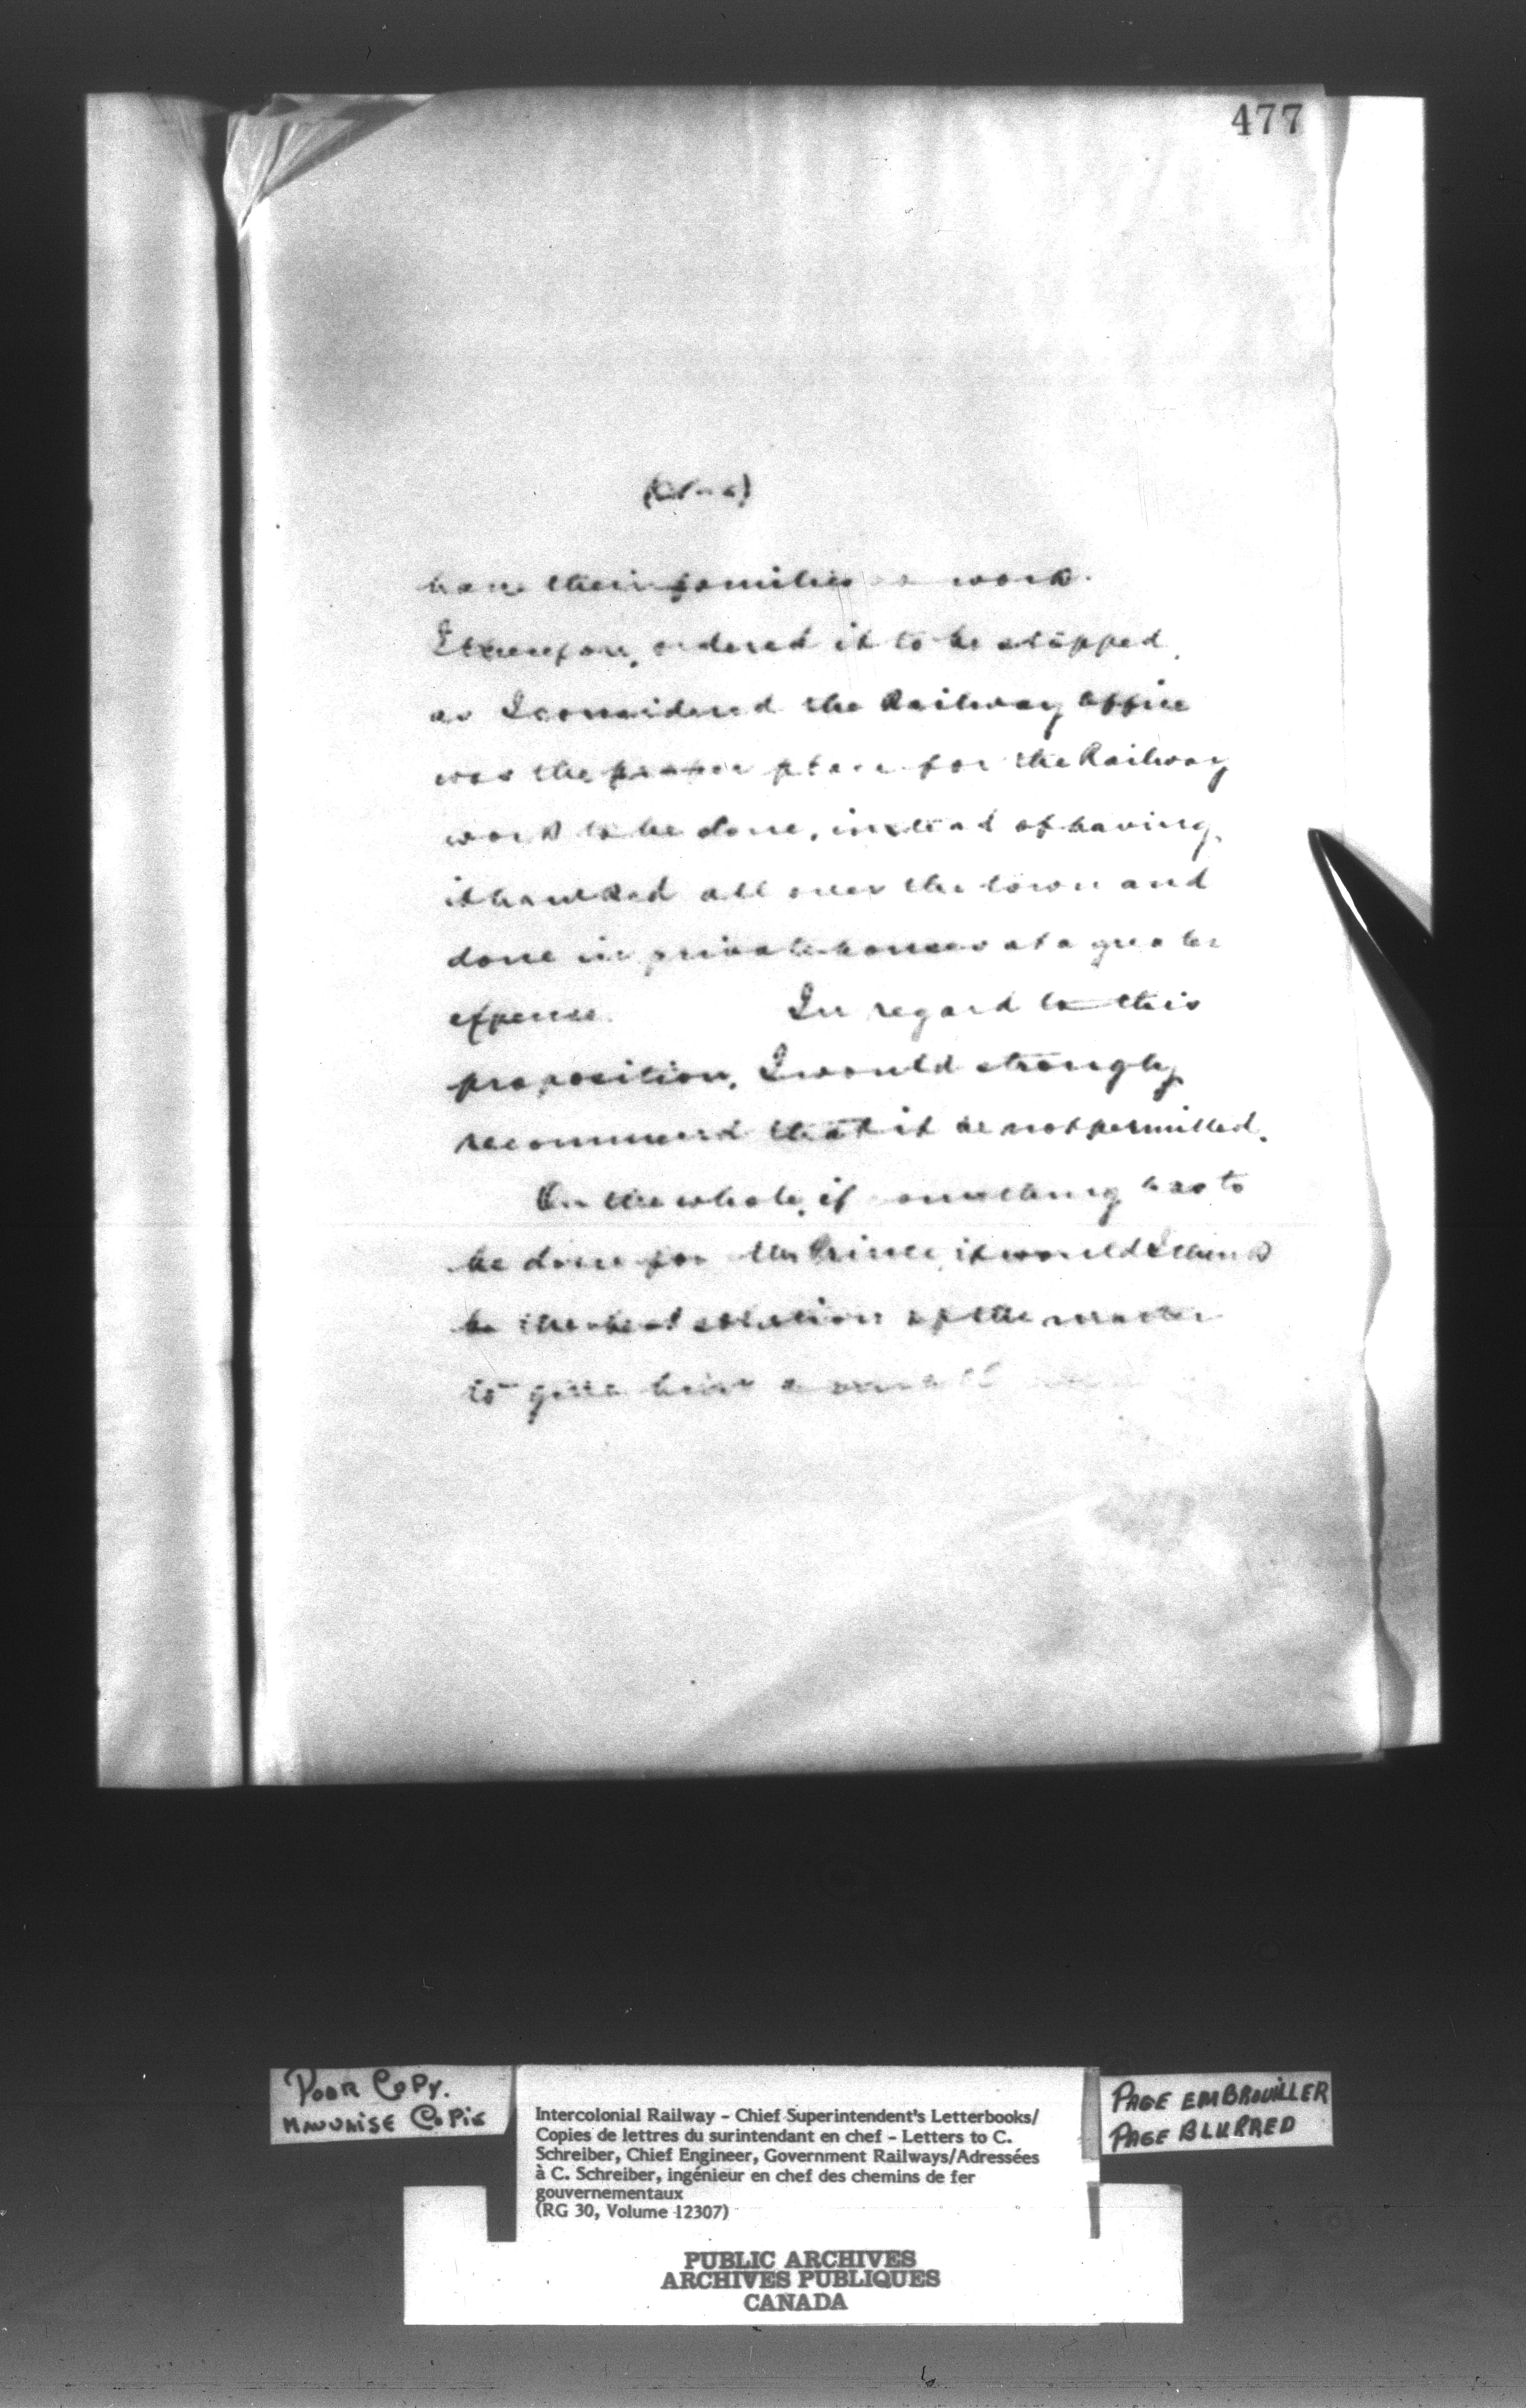 477
have their families work.
I therefore, ordered it to be stopped,
as I considered the Railway Office
was the proper place for the Railway
work to be done, instead of having
it hawked all over the town and
done in private houses at a greater
expense. In regard to this
proposition, I would strongly
recommend that it be not permitted.
On the whole, if something has to
be done for Mr Prince, it would I think
be the best solution of the matter
to give him a small
POOR COPY.
MAUVAISE COPIE
Intercolonial Railway - Chief Superintendent's Letterbooks/
Copies de lettres du surintendant en chef - Letters to C.
Schreiber, Chief Engineer, Government Railways/Adressées
à C. Schreiber, ingénieur en chef des chemins de fer
gouvernementaux
(RG 30, Volume 12307)
PAGE EMBROUILLER
PAGE BLURRED
PUBLIC ARCHIVES
ARCHIVES PUBLIQUES
CANADA